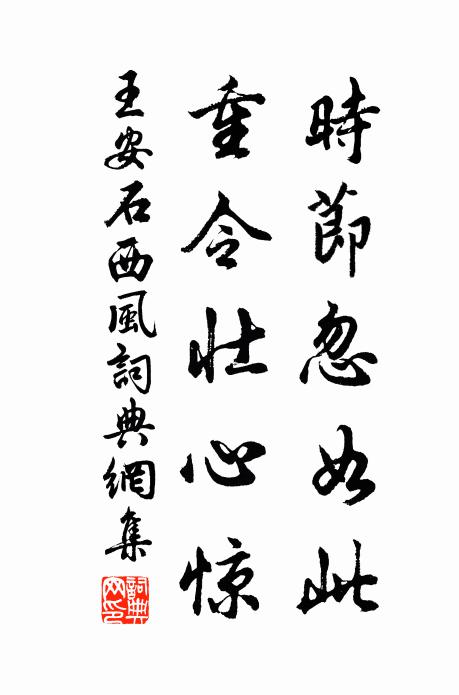 時節忽如此
重令壯心惊
王安石西風詞典網集
詞典網印